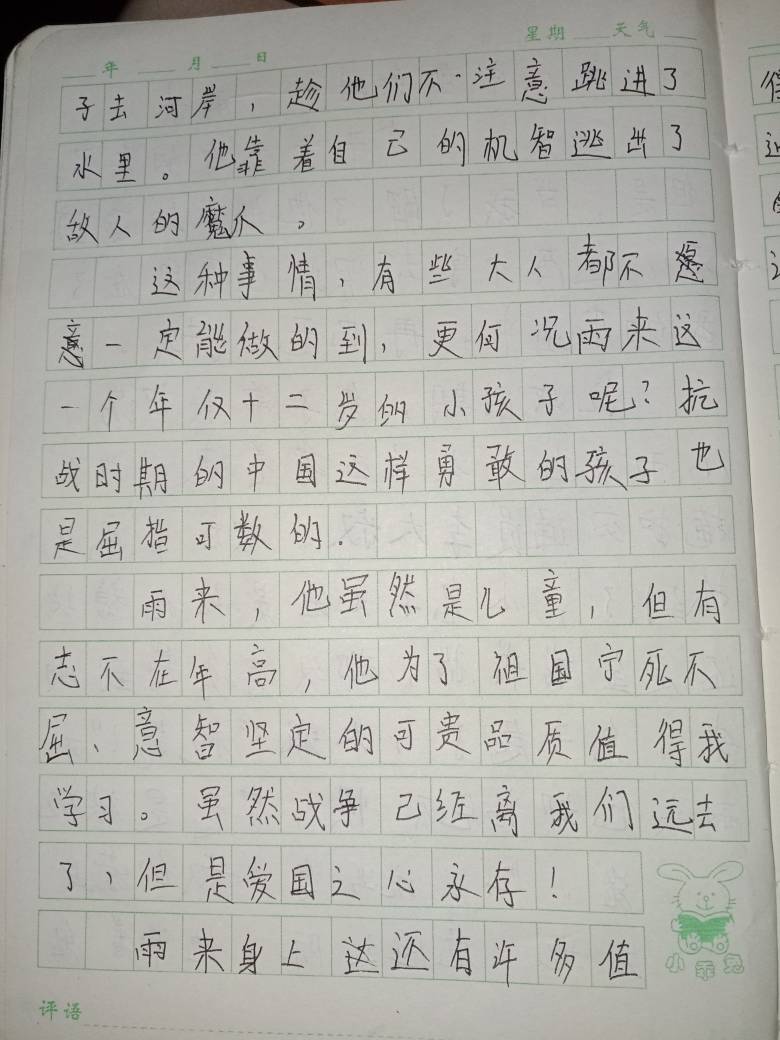 星期 天气
年 月 日
子去河岸，趁他们不注意跳进了
水里。他靠着自己的机智逃出了
敌人的魔爪。
这种事情，有些大人都不愿
意一定能做的到，更何况雨来这
一个年仅十二岁的小孩子呢？抗
战时期的中国这样勇敢的孩子也
是屈指可数的.
雨来，他虽然是儿童，但有
志不在年高，他为了祖国宁死不
屈、意智坚定的可贵品质值得我
学习。虽然战争已经离我们远去
了，但是爱国之心永存！
雨来身上这还有许多值
小乖兔
评语